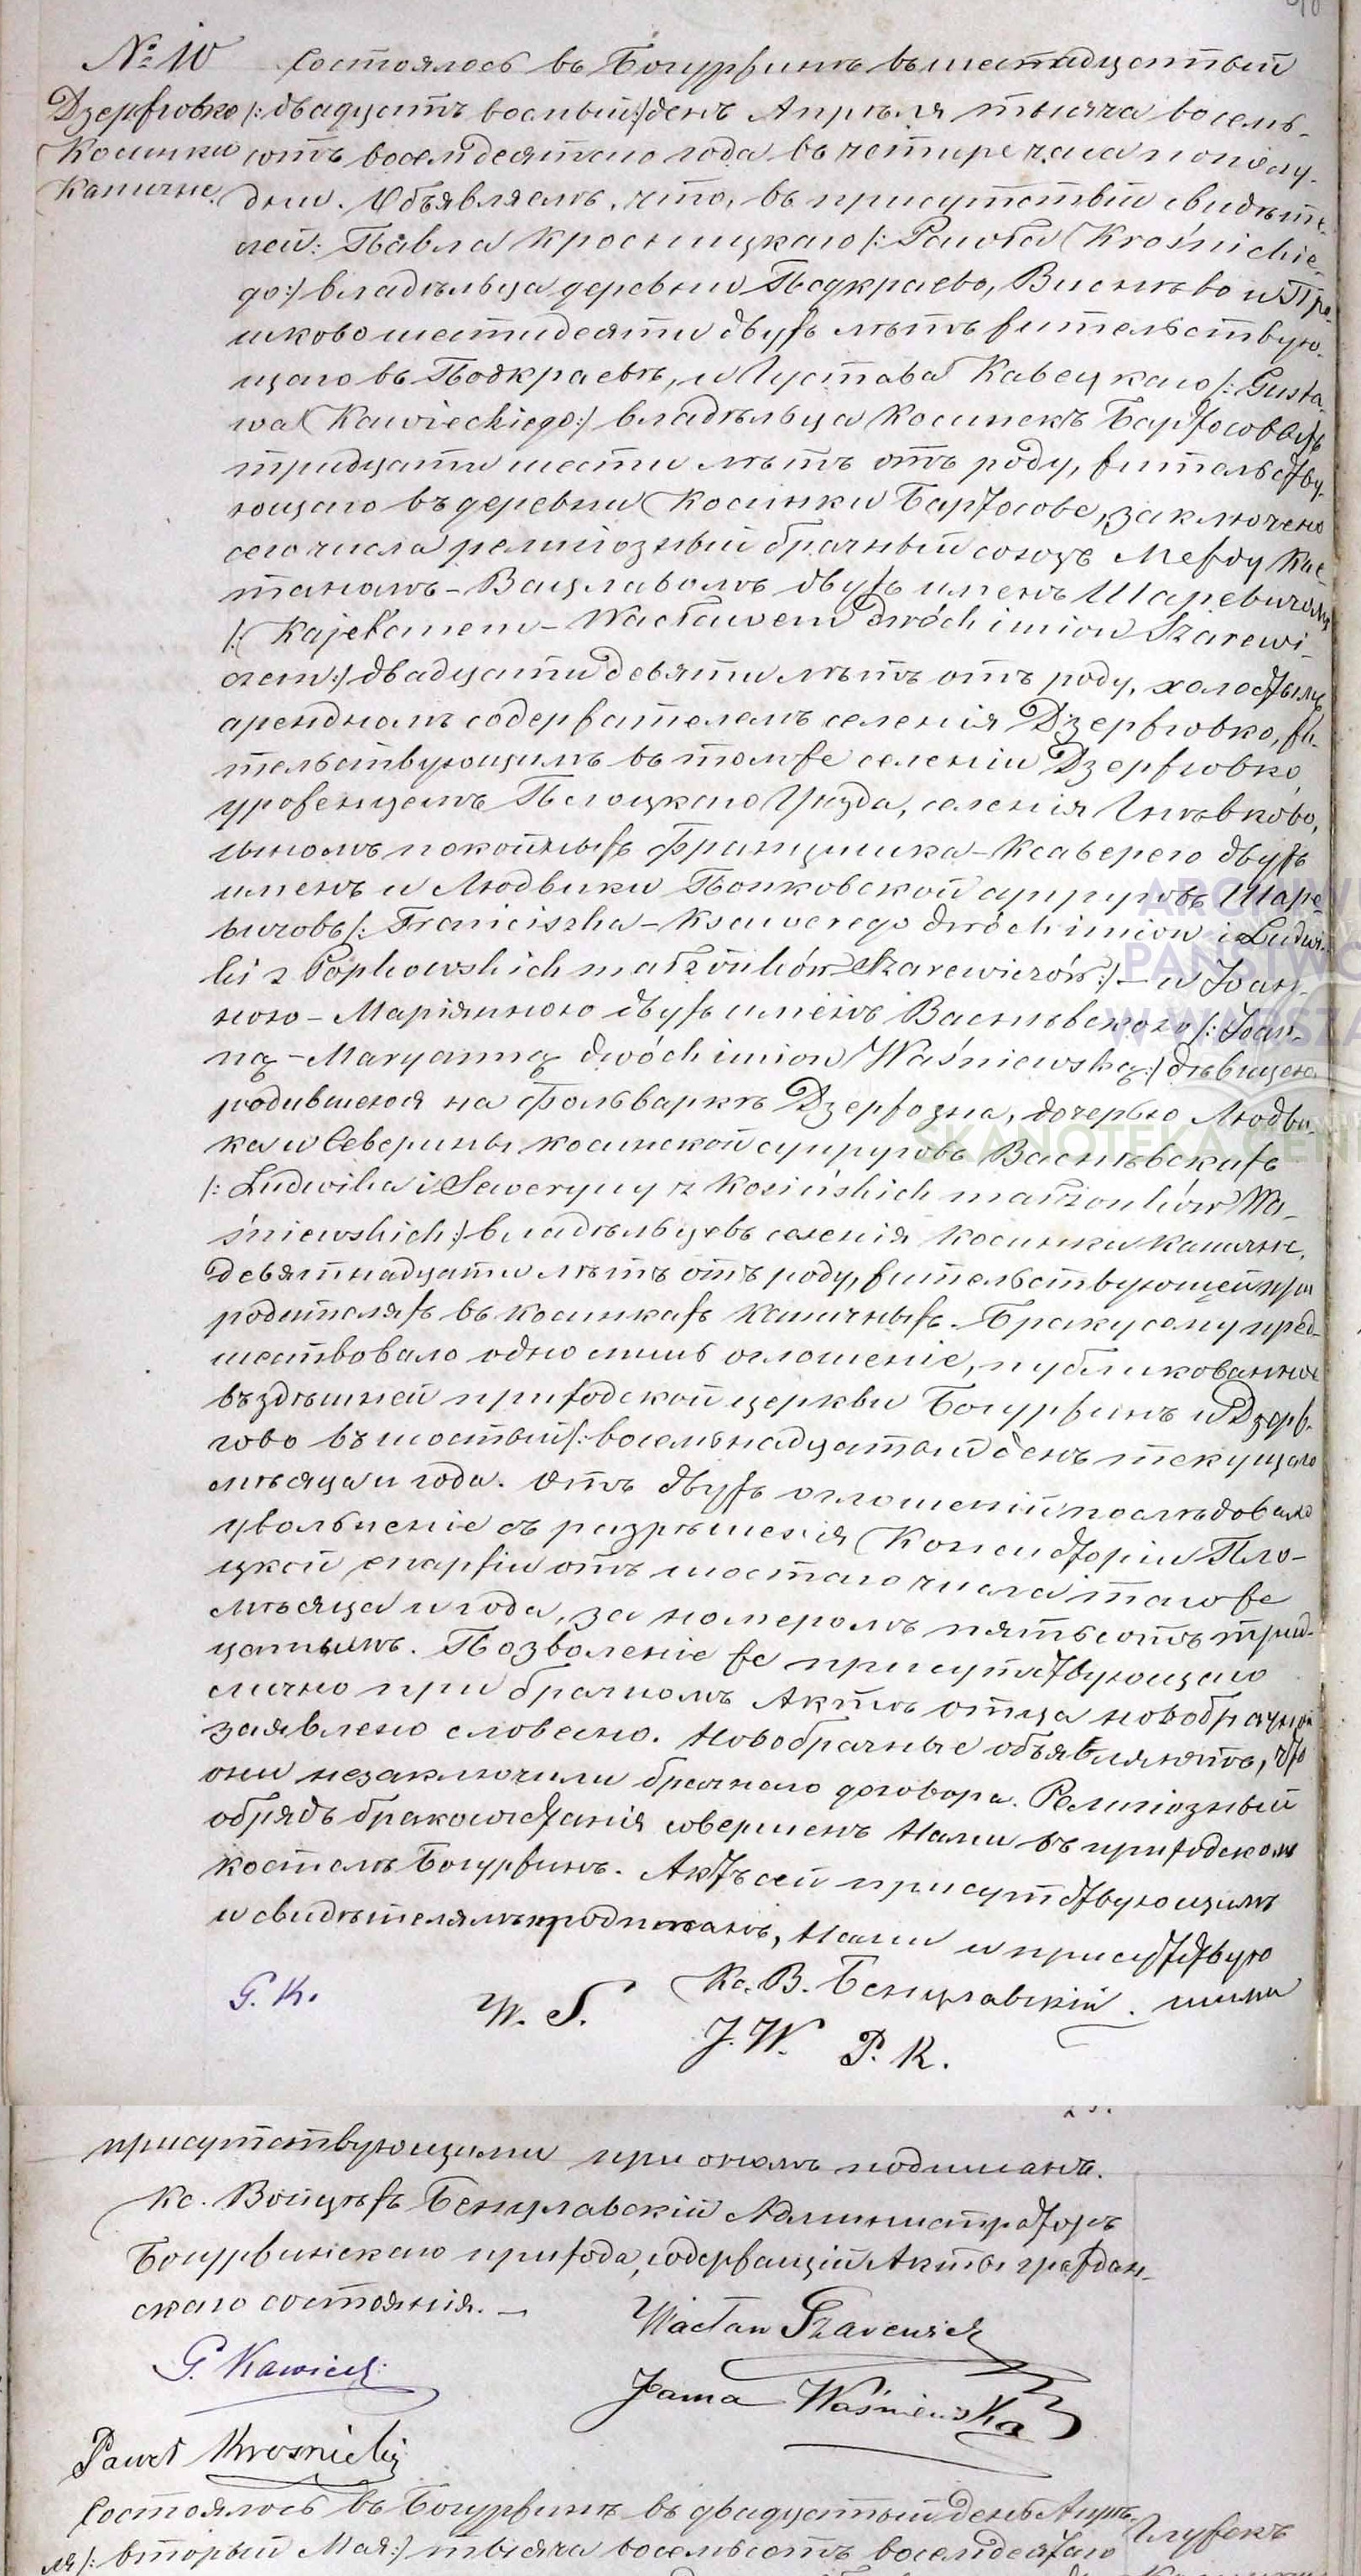 № 10 Состоялось въ Богуржинѣ въ шестнадцатый
Дзержгово /: двадцать восмый:/ день Апрѣля тысяча восемь-
Косинки сотъ восемдесятаго года въ четыре часа пополу-
Капичне. дни. Объявляемъ, что, въ присутствіи свидѣте-
лей: Павла Кросницкаго /: Pawła Krośnickie-
go:/ владѣльца деревни Подкраево, Виснѣво и
шково шестидесяти двухъ лѣтъ жительствую-
щаго въ Подкраевѣ, и Густава Кавецкаго /: Gusta-
wa Kawieckiego:/ владѣльца Косинекъ Бартосовыхъ
тридцати шести лѣтъ отъ роду, жительству-
ющаго въ деревни Косинки Бартосове, заключено
сего числа религіозный брачный союзъ между Кае-
таномъ-Вацлавомъ двухъ именъ Шаревичомъ
/: Kajetanem-Wacławem dwóch imion Szarewi-
czem:/ двадцати девяти лѣтъ отъ роду, холостымъ
аренднымъ содержателемъ селенія Дзержгово, жи-
тельствующимъ въ томже селеніи Дзержгово,
уроженцемъ Плоцкаго Уѣзда, селенія Гнѣвково,
сыномъ покойныхъ Францишка-Ксаверего двухъ
именъ и Людвики Попковской супруговъ Шаре-
вичовъ /: Franciszka-Ksawerego dwóch imion i Ludwi-
ki z Popkowskich małżonków Szarewiczów:/ – и Іоан-
ною-Маріянною двухъ именъ Васнѣвскою /: Joan-
ną-Maryanną dwóch imion Waśniewską:/ дѣвицею
родившеюся на фольваркѣ Дзержозна, дочерью Людви-
ка и Северины Косинской супруговъ Васнѣвскихъ
/: Ludwika i Seweryny z Kosińskich małżonków Wa-
śniewskich:/ владѣльцевъ селенія Косинки Капичне,
девятнадцати лѣтъ отъ роду, жительствующей при
родителяхъ въ Косинкахъ Капичныхъ. Браку сему пред-
шествовало одно лишь оглошеніе, публикованное
въ здѣшней приходской церкви Богуржинъ и Дзерж-
гово въ шостый /: восемьнадцатый день текущаго
мѣсяца и года. Отъ двухъ оглошеній послѣдовало
увольненіе съ разрѣшенія Консисторіи Пло-
цкой епархіи отъ шостаго числа тогоже
мѣсяца и года, за номеромъ пятьсотъ трид-
цатымъ. Позволеніе же присутствующаго
лично при брачномъ Актѣ отца новобрачной
заявлено словесно. Новобрачные объявляютъ, что
они незаключили брачнаго договора. Религіозный
обрядъ бракосочетанія совершенъ Нами въ приходскомъ
костелѣ Богуржинъ. Актъ сей присутствующимъ
и свидѣтелямъ прочитанъ, Нами и присутствую
щими
Кс. В. Бенцлавскій.
G. K.
W. S.
J. W. P. K.
присутствующими при ономъ подписанъ.
Кс. Войцѣхъ Бенцлавскій Администраторъ
Богуржинскаго прихода, содержащій Акты граждан-
скаго состоянія. –
Wacław Szarewicz
G. Kawiecki
Joanna Waśniewska
Paweł Krosnicki
Состоялось въ Богуржинѣ въ двадцатый день Апрѣ-
ля /: вторый Мая:/ тысяча восемьсотъ восемдесятаго